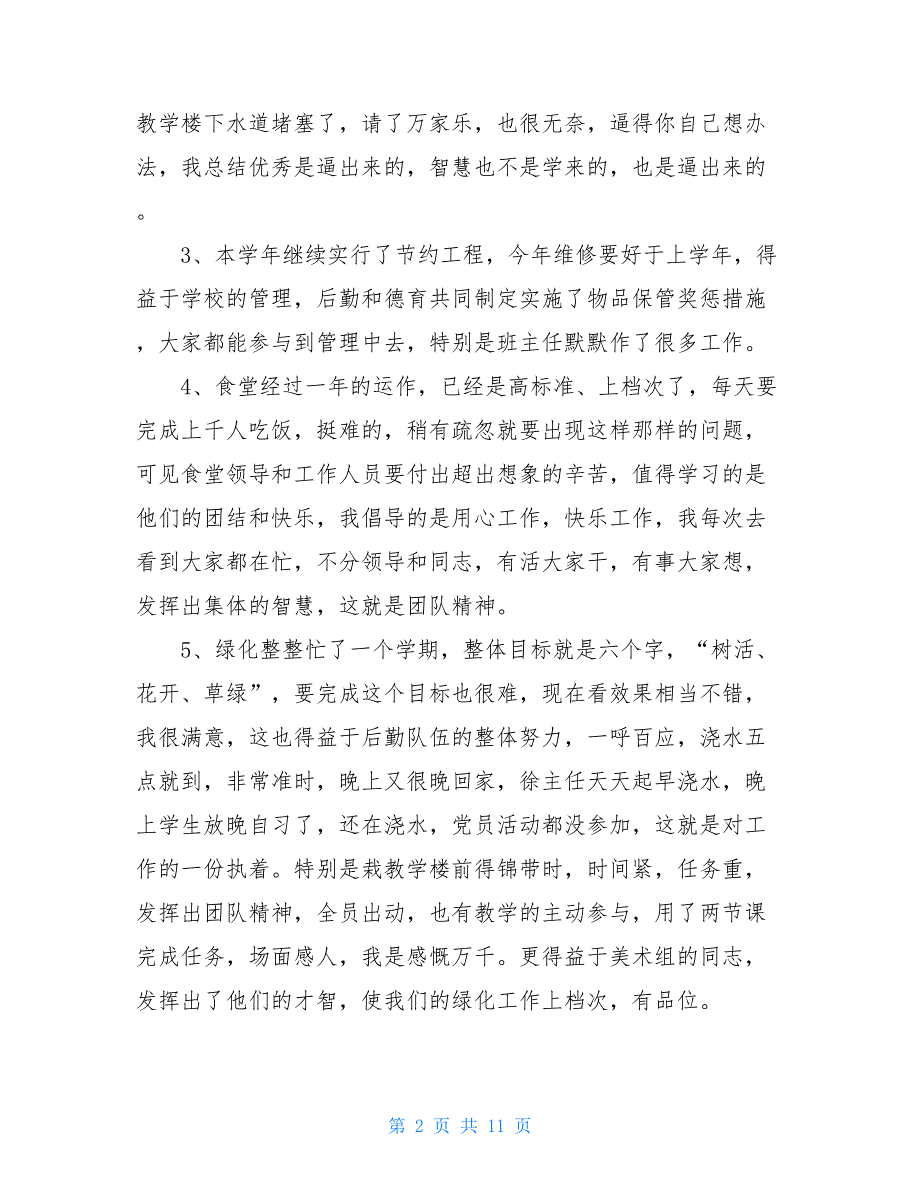 教学楼下水道堵塞了，请了万家乐，也很无奈，逼得你自己想办
法，我总结优秀是逼出来的，智慧也不是学来的，也是逼出来的
。
3、本学年继续实行了节约工程，今年维修要好于上学年，得
益于学校的管理，后勤和德育共同制定实施了物品保管奖惩措施
，大家都能参与到管理中去，特别是班主任默默作了很多工作。
4、食堂经过一年的运作，已经是高标准、上档次了，每天要
完成上千人吃饭，挺难的，稍有疏忽就要出现这样那样的问题，
可见食堂领导和工作人员要付出超出想象的辛苦，值得学习的是
他们的团结和快乐，我倡导的是用心工作，快乐工作，我每次去
看到大家都在忙，不分领导和同志，有活大家干，有事大家想，
发挥出集体的智慧，这就是团队精神。
5、绿化整整忙了一个学期，整体目标就是六个字，“树活、
花开、草绿”，要完成这个目标也很难，现在看效果相当不错，
我很满意，这也得益于后勤队伍的整体努力，一呼百应，浇水五
点就到，非常准时，晚上又很晚回家，徐主任天天起早浇水，晚
上学生放晚自习了，还在浇水，党员活动都没参加，这就是对工
作的一份执着。特别是栽教学楼前得锦带时，时间紧，任务重，
发挥出团队精神，全员出动，也有教学的主动参与，用了两节课
完成任务，场面感人，我是感慨万千。更得益于美术组的同志，
发挥出了他们的才智，使我们的绿化工作上档次，有品位。
第 2 页 共 11 页